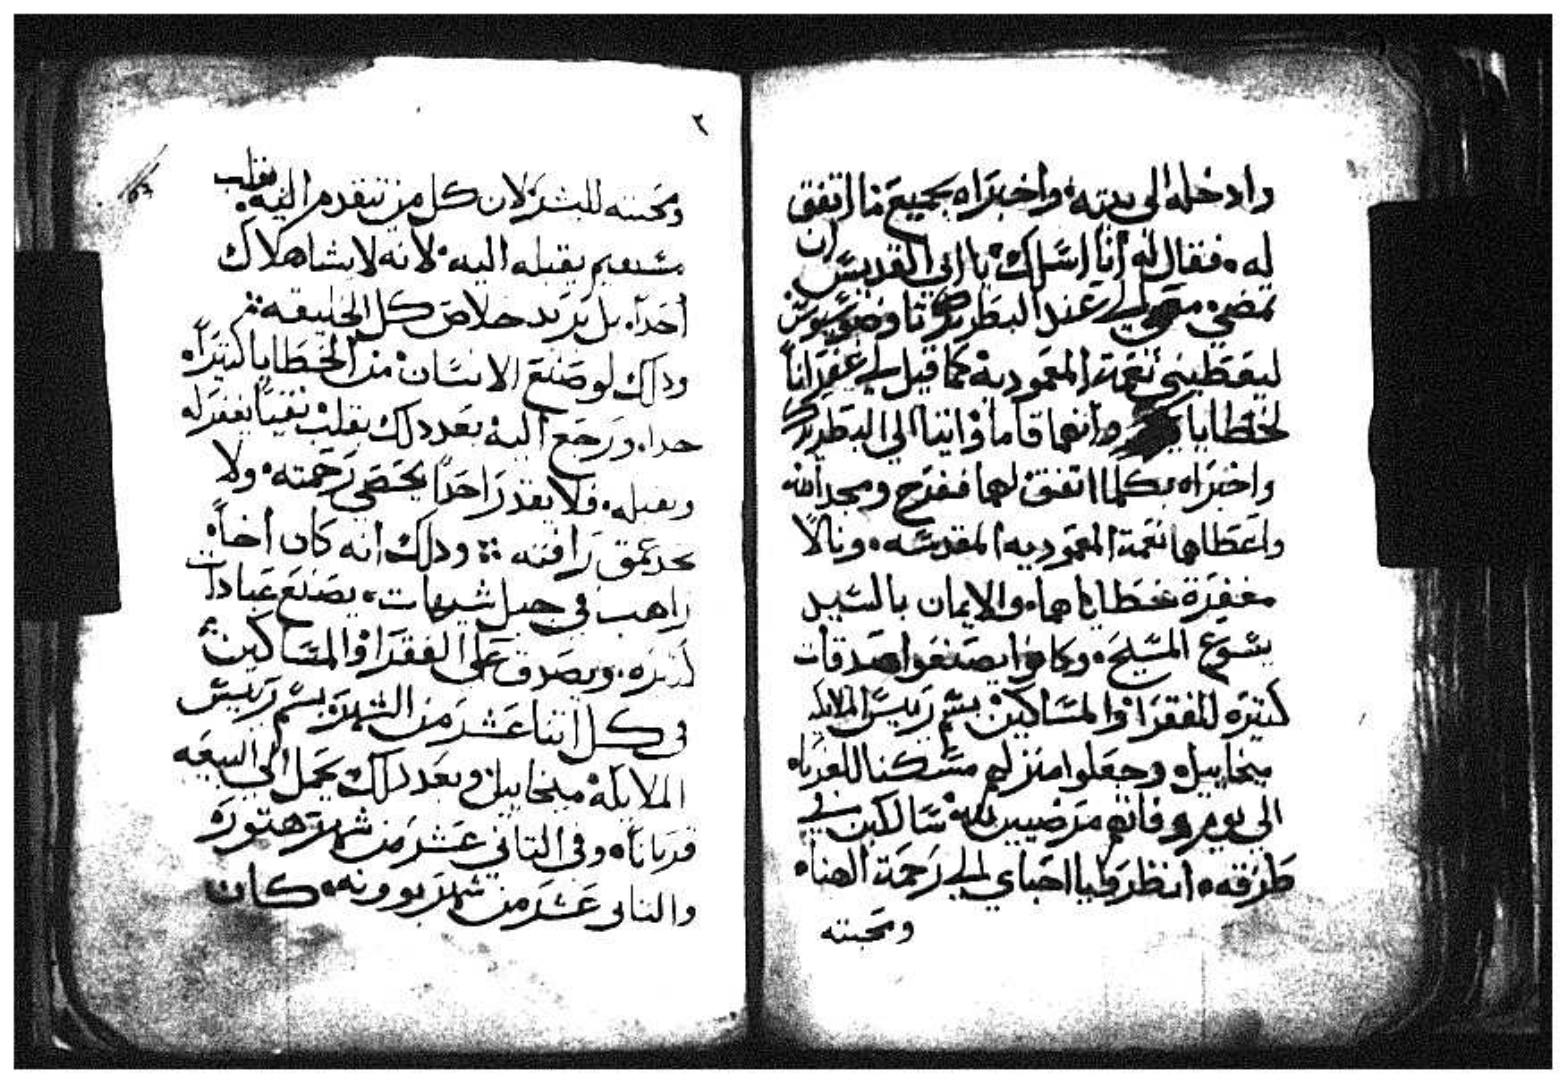 وادخله الي بيته، واخبراه بجميع ما اتفق
له. فقال له أنا اسلك يا ابي القديس ان
تمضي معي الي عند البطريرك تاوضوسيوس
ليعطيني نعمة المعمودية كما قيل لي غفرانا
لخطاياي وأنهما قاما واتيا الي البطريرك
واخبراه بكلما اتفق لهما ففرح ومجد الله
واعطاهما نعمة المعموديه المقدسه. ونالا
مغفرة خطاياهما. والايمان بالسيد
يسوع المسيح. وكانوا يصنعوا صدقات
كتيره للفقرا والمساكين بسم رييس الملايكه
ميخاييل. وجعلوا منزلهم مسكنا للغربا.
الي يوم وفاتهم مرضيين لله سالكين في
طرقه. انظروا يا احباي الي رحمة الهنا.
ومحبته
٢
ومحبته للبشر لان كل من تتقدم اليه. بقلب
مستقيم يقبله اليه. لانه لا يشا هلاك
أحدا. بل يريد خلاص كل الخليقه
ودلك لو صنع الانسان من الخطايا كتيرا
جدا. ورجع اليه بعد دلك بقلب نقيا يغفر له
ويقبله. فلا يقدر احدا يحصي رحمته. ولا
يحد عمق رافته ودلك انه كان أخا
راهب في جبل شيهات. يصنع عبادات
كتيره. ويصدق علي الفقرا والمساكين
في كل اتنا عشر من الشهر بسم رييس
الملايكة ميخاييل وبعد دلك يحمل الي البيعه
قربانا. وفي التاني عشر من شهر هتور
والتاني عشر من شهر بوونه. كان